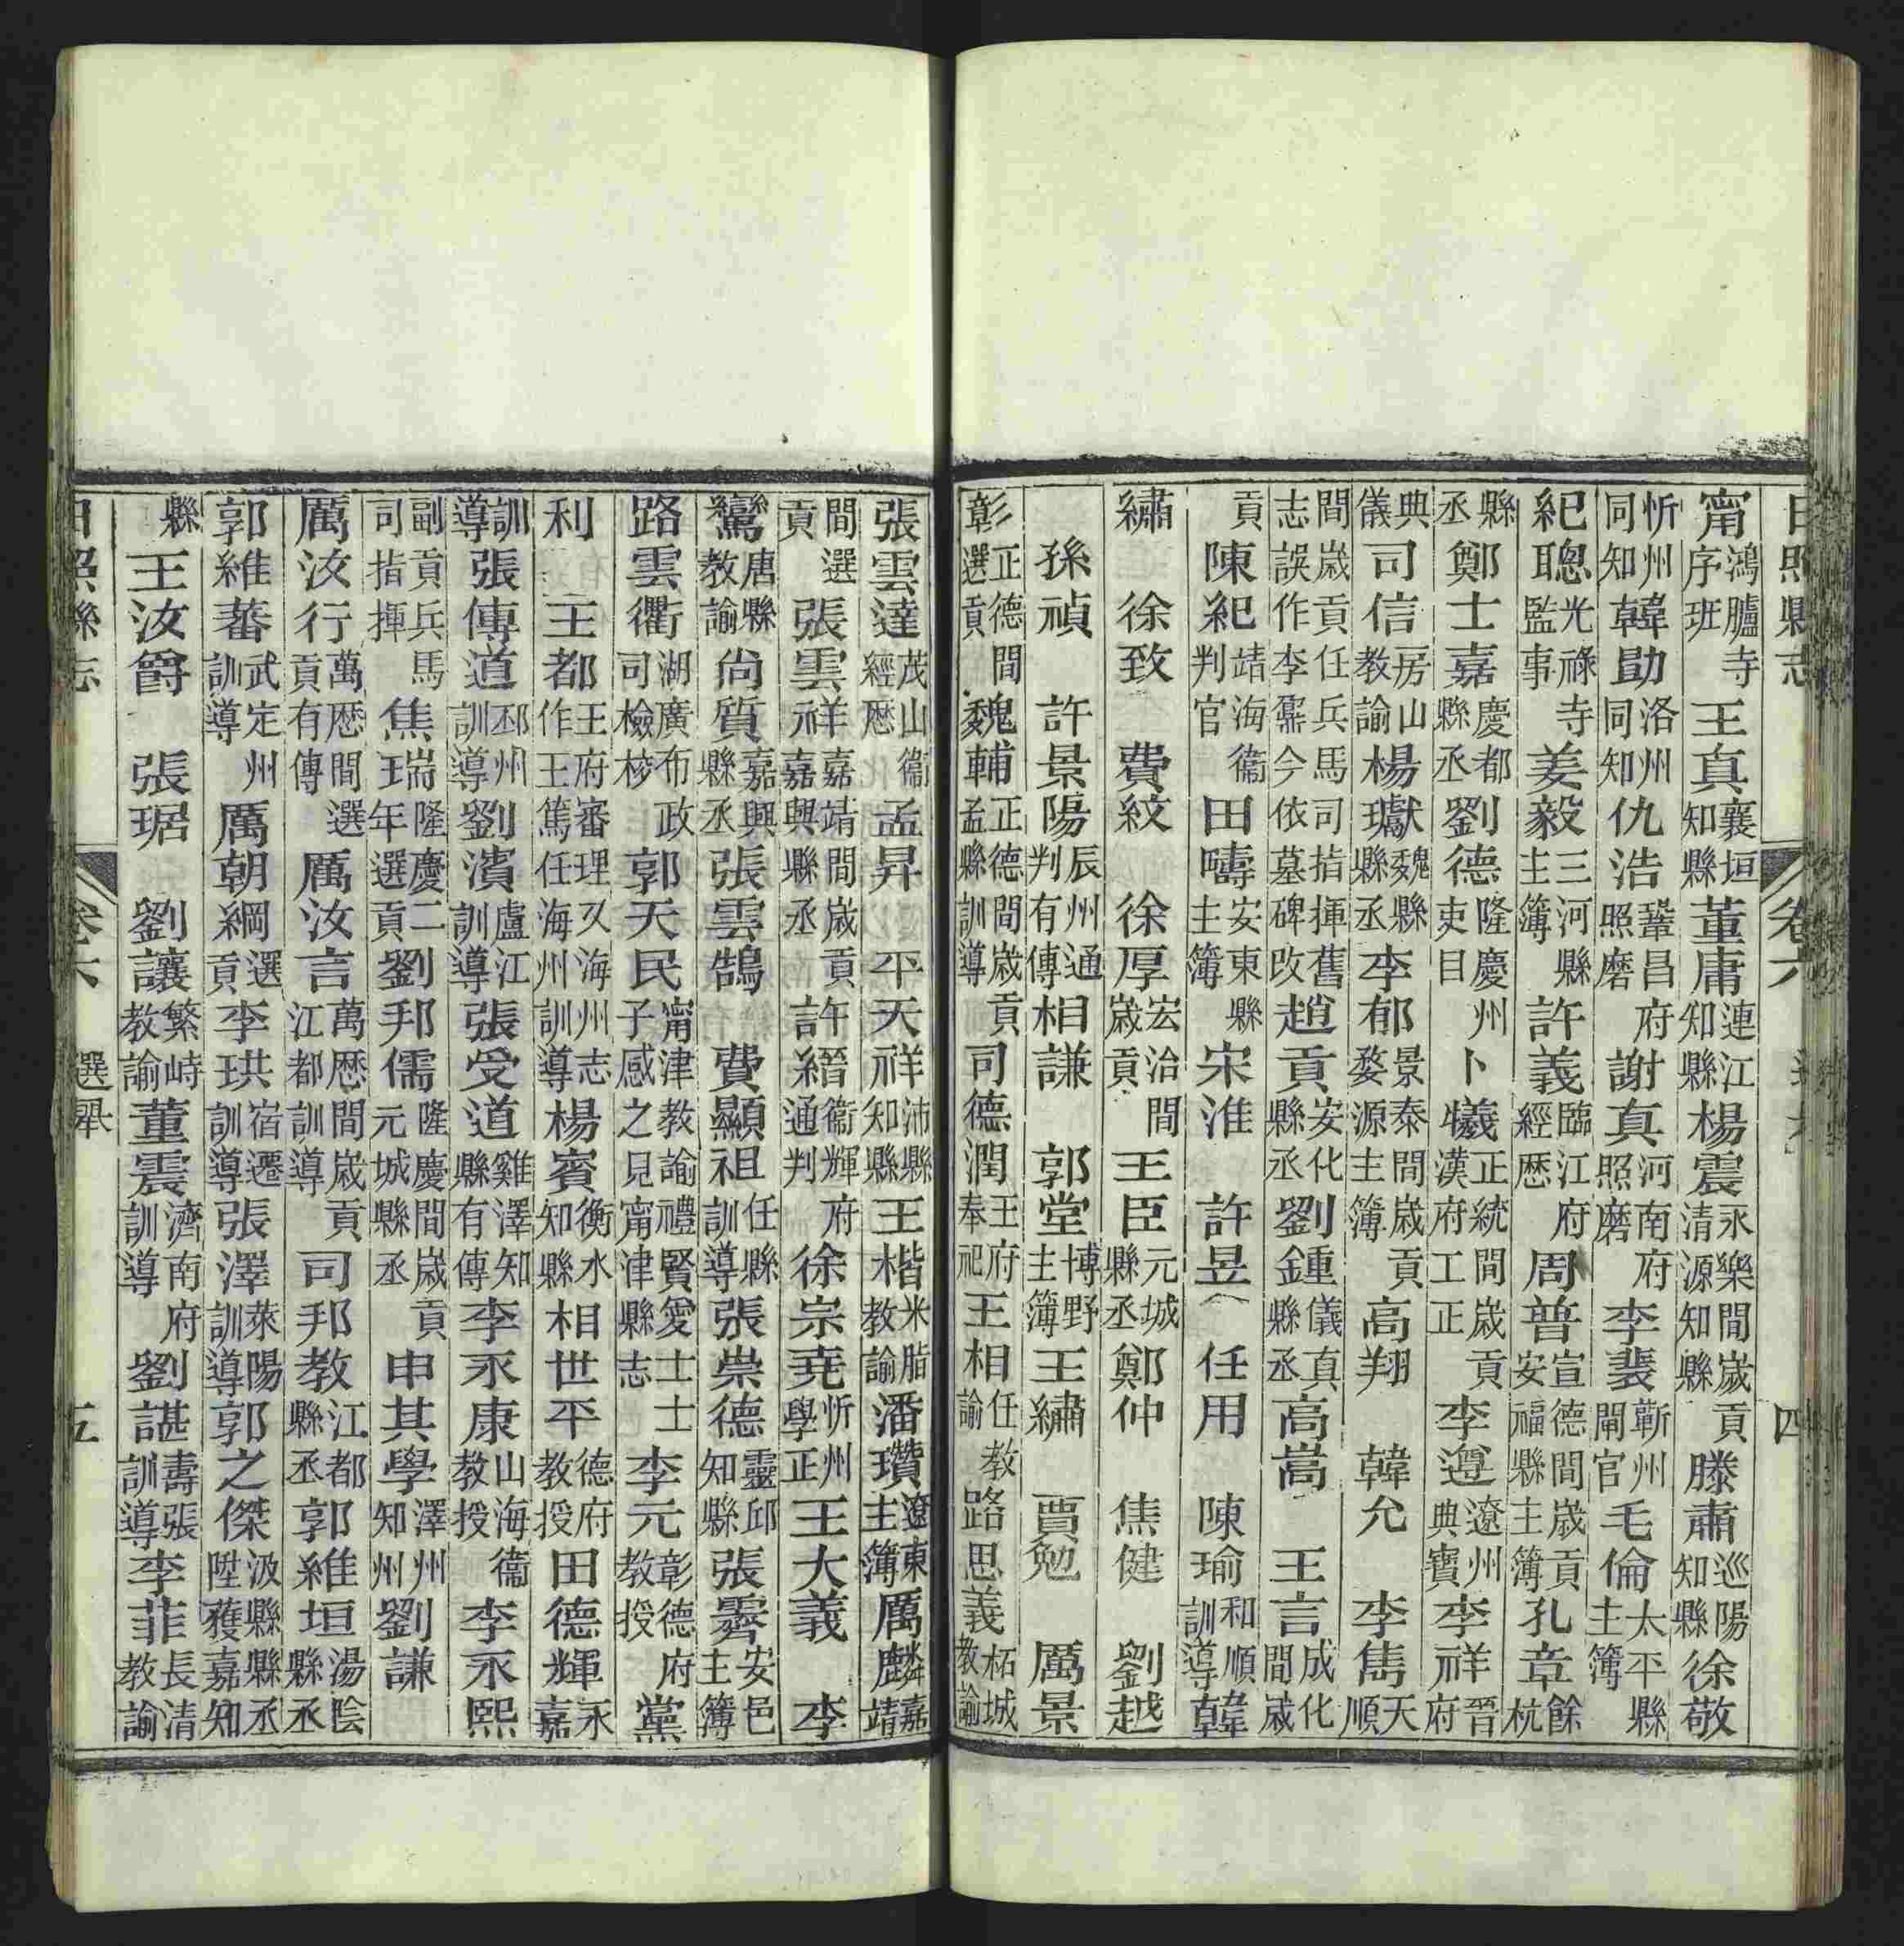 日照縣志 卷六 選舉 四
甯鴻臚寺序班 王真襄垣知縣 董庸連江知縣 楊震永樂間歲貢清源知縣 滕肅巡陽知縣 徐敬
忻州同知 韓勛洛州同知 仇浩鞏昌府照磨 謝真河南府照磨 李裴蘄州閘官 毛倫太平縣主簿
紀聰光祿寺監事 姜毅三河縣主簿 許義臨江府經歷 周普宣德間歲貢安福縣主簿 孔章餘杭
縣丞 鄭士嘉慶都縣丞 劉德隆慶州吏目 卜犧正統間歲貢漢府工正 李遵遼州典寶 李祥晉府
典儀 司信房山教諭 楊瓛魏縣縣丞 李郁景泰間歲貢婺源主簿 高翔 韓允 李雋天順
間歲貢任兵馬司指揮舊志誤作李鼐今依墓碑改 趙貢安化縣丞 劉鍾儀真縣丞 高嵩 王言成化間歲
貢 陳紀靖海衞判官 田疇安東縣主簿 宋淮 許昱 任用 陳瑜和順訓導 韓
繡 徐致 費紋 徐厚宏治間歲貢 王臣元城縣丞 鄭仲 焦健 劉越
孫禎 許景陽辰州通判有傳 相謙 郭堂博野主簿 王繡 賈勉 厲景
彰正德間選貢 魏輔正德間歲貢孟縣訓導 司德潤王府奉祀 王相任教諭 路思義柘城教諭
張雲達茂山衞經歷 孟昇 平天祥沛縣知縣 王楷米脂教諭 潘瓚遼東主簿 厲麟嘉靖
間選貢 張雲祥嘉靖間歲貢嘉興縣丞 許縉衞輝府通判 徐宗堯忻州學正 王大義 李
鸞唐縣教諭 尙質嘉興縣丞 張雲鵠 費顯祖任縣訓導 張崇德靈邱知縣 張霽安邑主簿
路雲衢湖廣布政司檢校 郭天民甯津教諭禮賢愛士士子感之見甯津縣志 李元彰德府教授 黨
利 王都王府審理又海州志作王篤任海州訓導 楊賓衡水知縣 相世平德府教授 田德輝永嘉
訓導 張傳道邳州訓導 劉濱盧江訓導 張受道雞澤知縣有傳 李永康山海衞教授 李永熙
副貢兵馬司指揮 焦瑞隆慶二年選貢 劉邦儒隆慶間歲貢元城縣丞 申其學澤州知州 劉謙
厲汝行萬歷間選貢有傳 厲汝言萬歷間歲貢江都訓導 司邦教江都縣丞 郭維垣湯陰縣丞
郭維蕃武定州訓導 厲朝綱選貢 李珙宿遷訓導 張澤萊陽訓導 郭之傑汲縣縣丞陞獲嘉知
縣 王汝爵 張琚 劉讓繁峙教諭 董震濟南府訓導 劉諶壽張訓導 李菲長清教諭
日照縣志 卷六 選舉 五